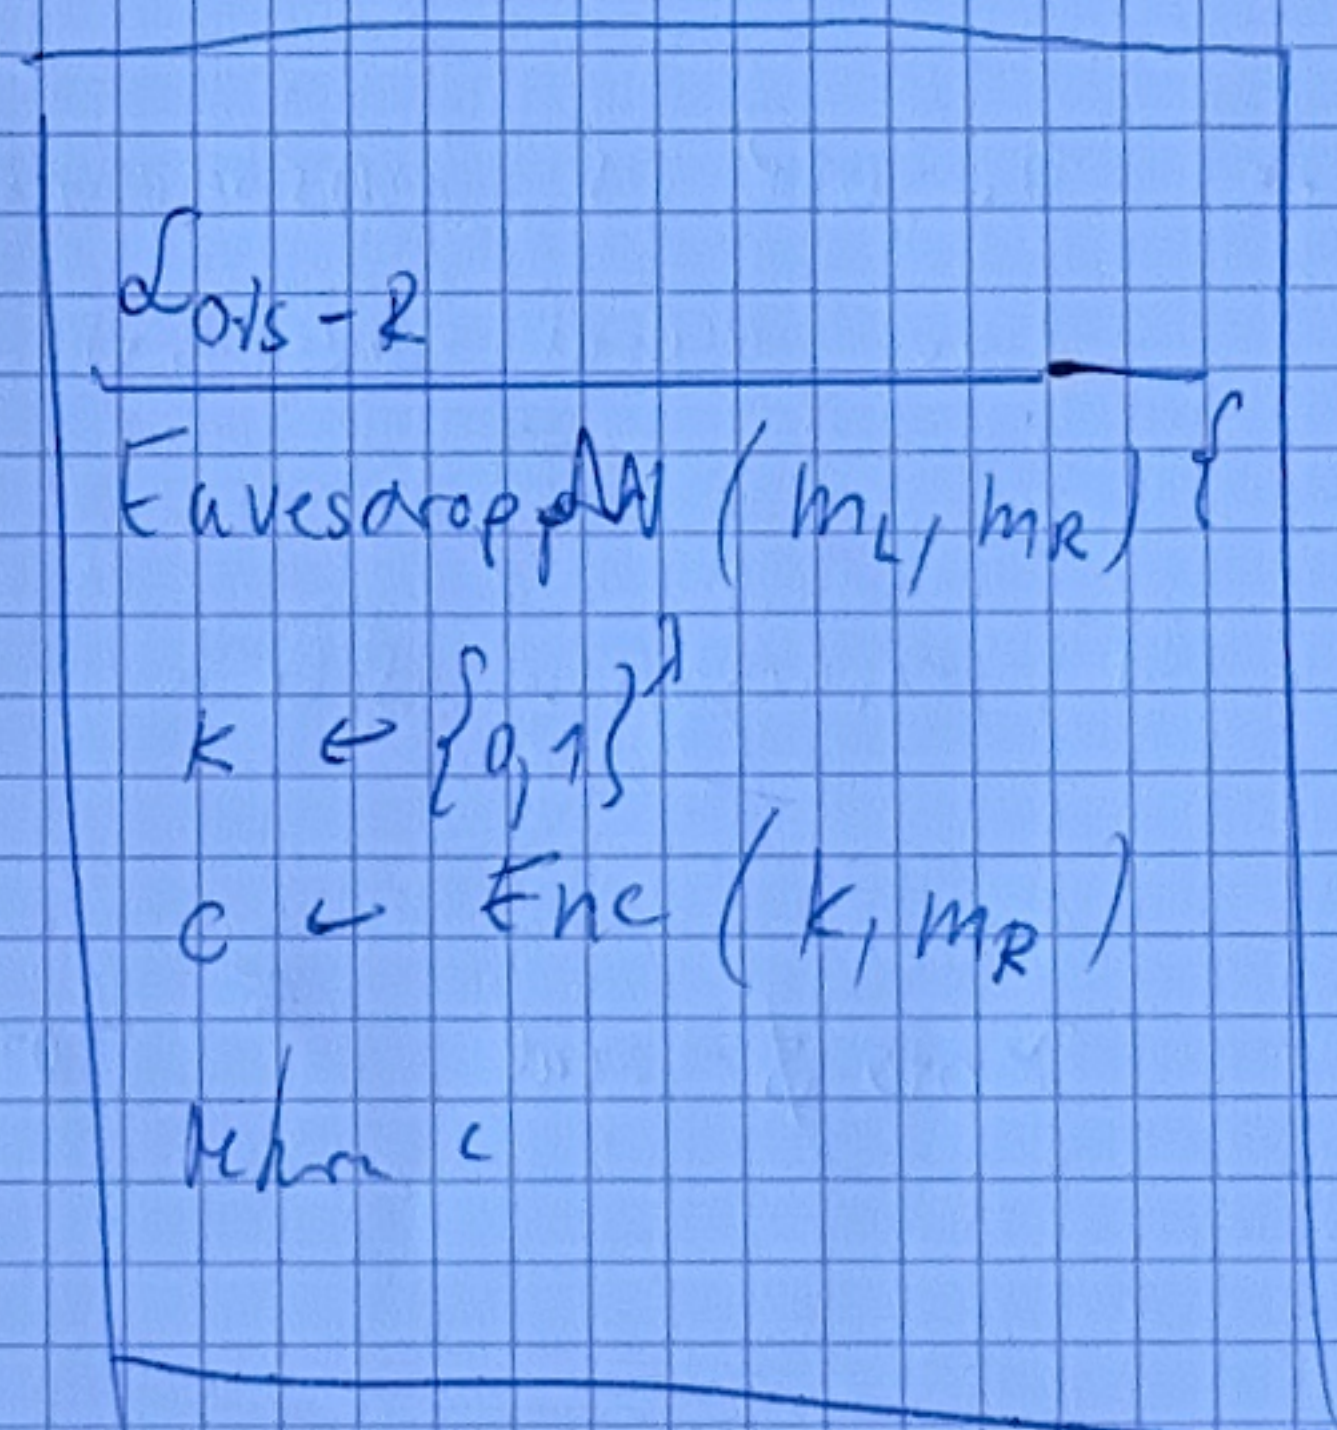 ℒ_ots-R
Eavesdrop (m_L, m_R) {
k ← {0,1}^λ
c ← Enc (k, m_R)
return c